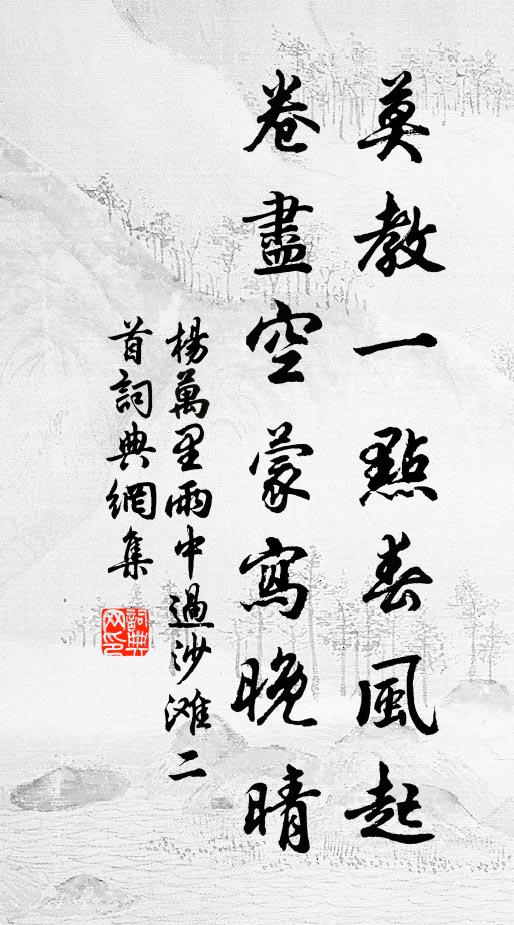 莫教一點春風起
卷盡空蒙寫晚晴
楊萬里雨中過沙滩二
首詞典網集
詞典
网印